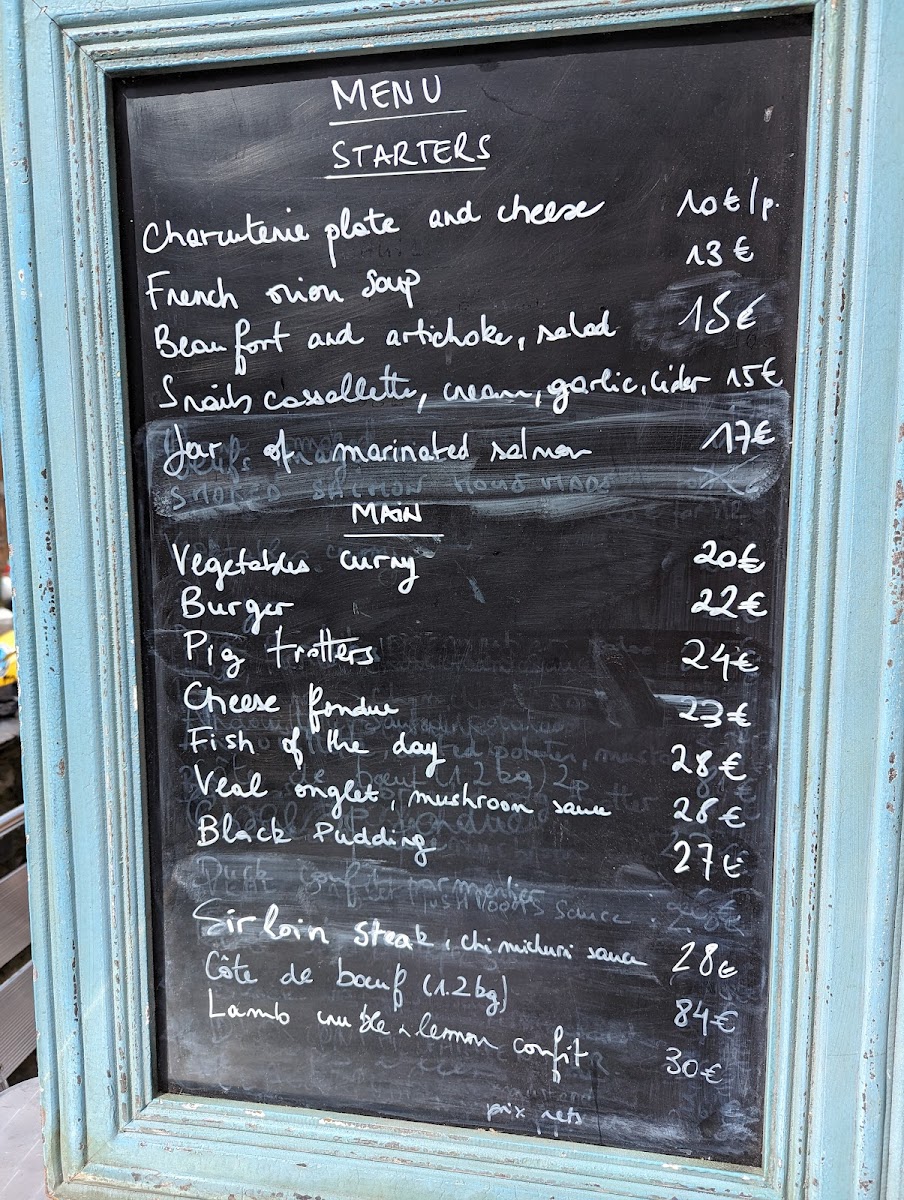 MENU
STARTERS
Charcuterie plate and cheese 10€/p.
French onion soup 13€
Beaufort and artichoke, salad 15€
Snails cassollette, cream, garlic, cider 15€
Jar of marinated salmon 17€
SMOKED SALMON
MAIN
Vegetables curry 20€
Burger 22€
Pig trotters 24€
Cheese fondue 23€
Fish of the day 28€
Veal onglet, mushroom sauce 28€
Black Pudding 27€
Duck confit parmentier
Sirloin steak, chimichuri sauce 28€
Côte de bœuf (1.2kg) 84€
Lamb lemon confit 30€
prix nets